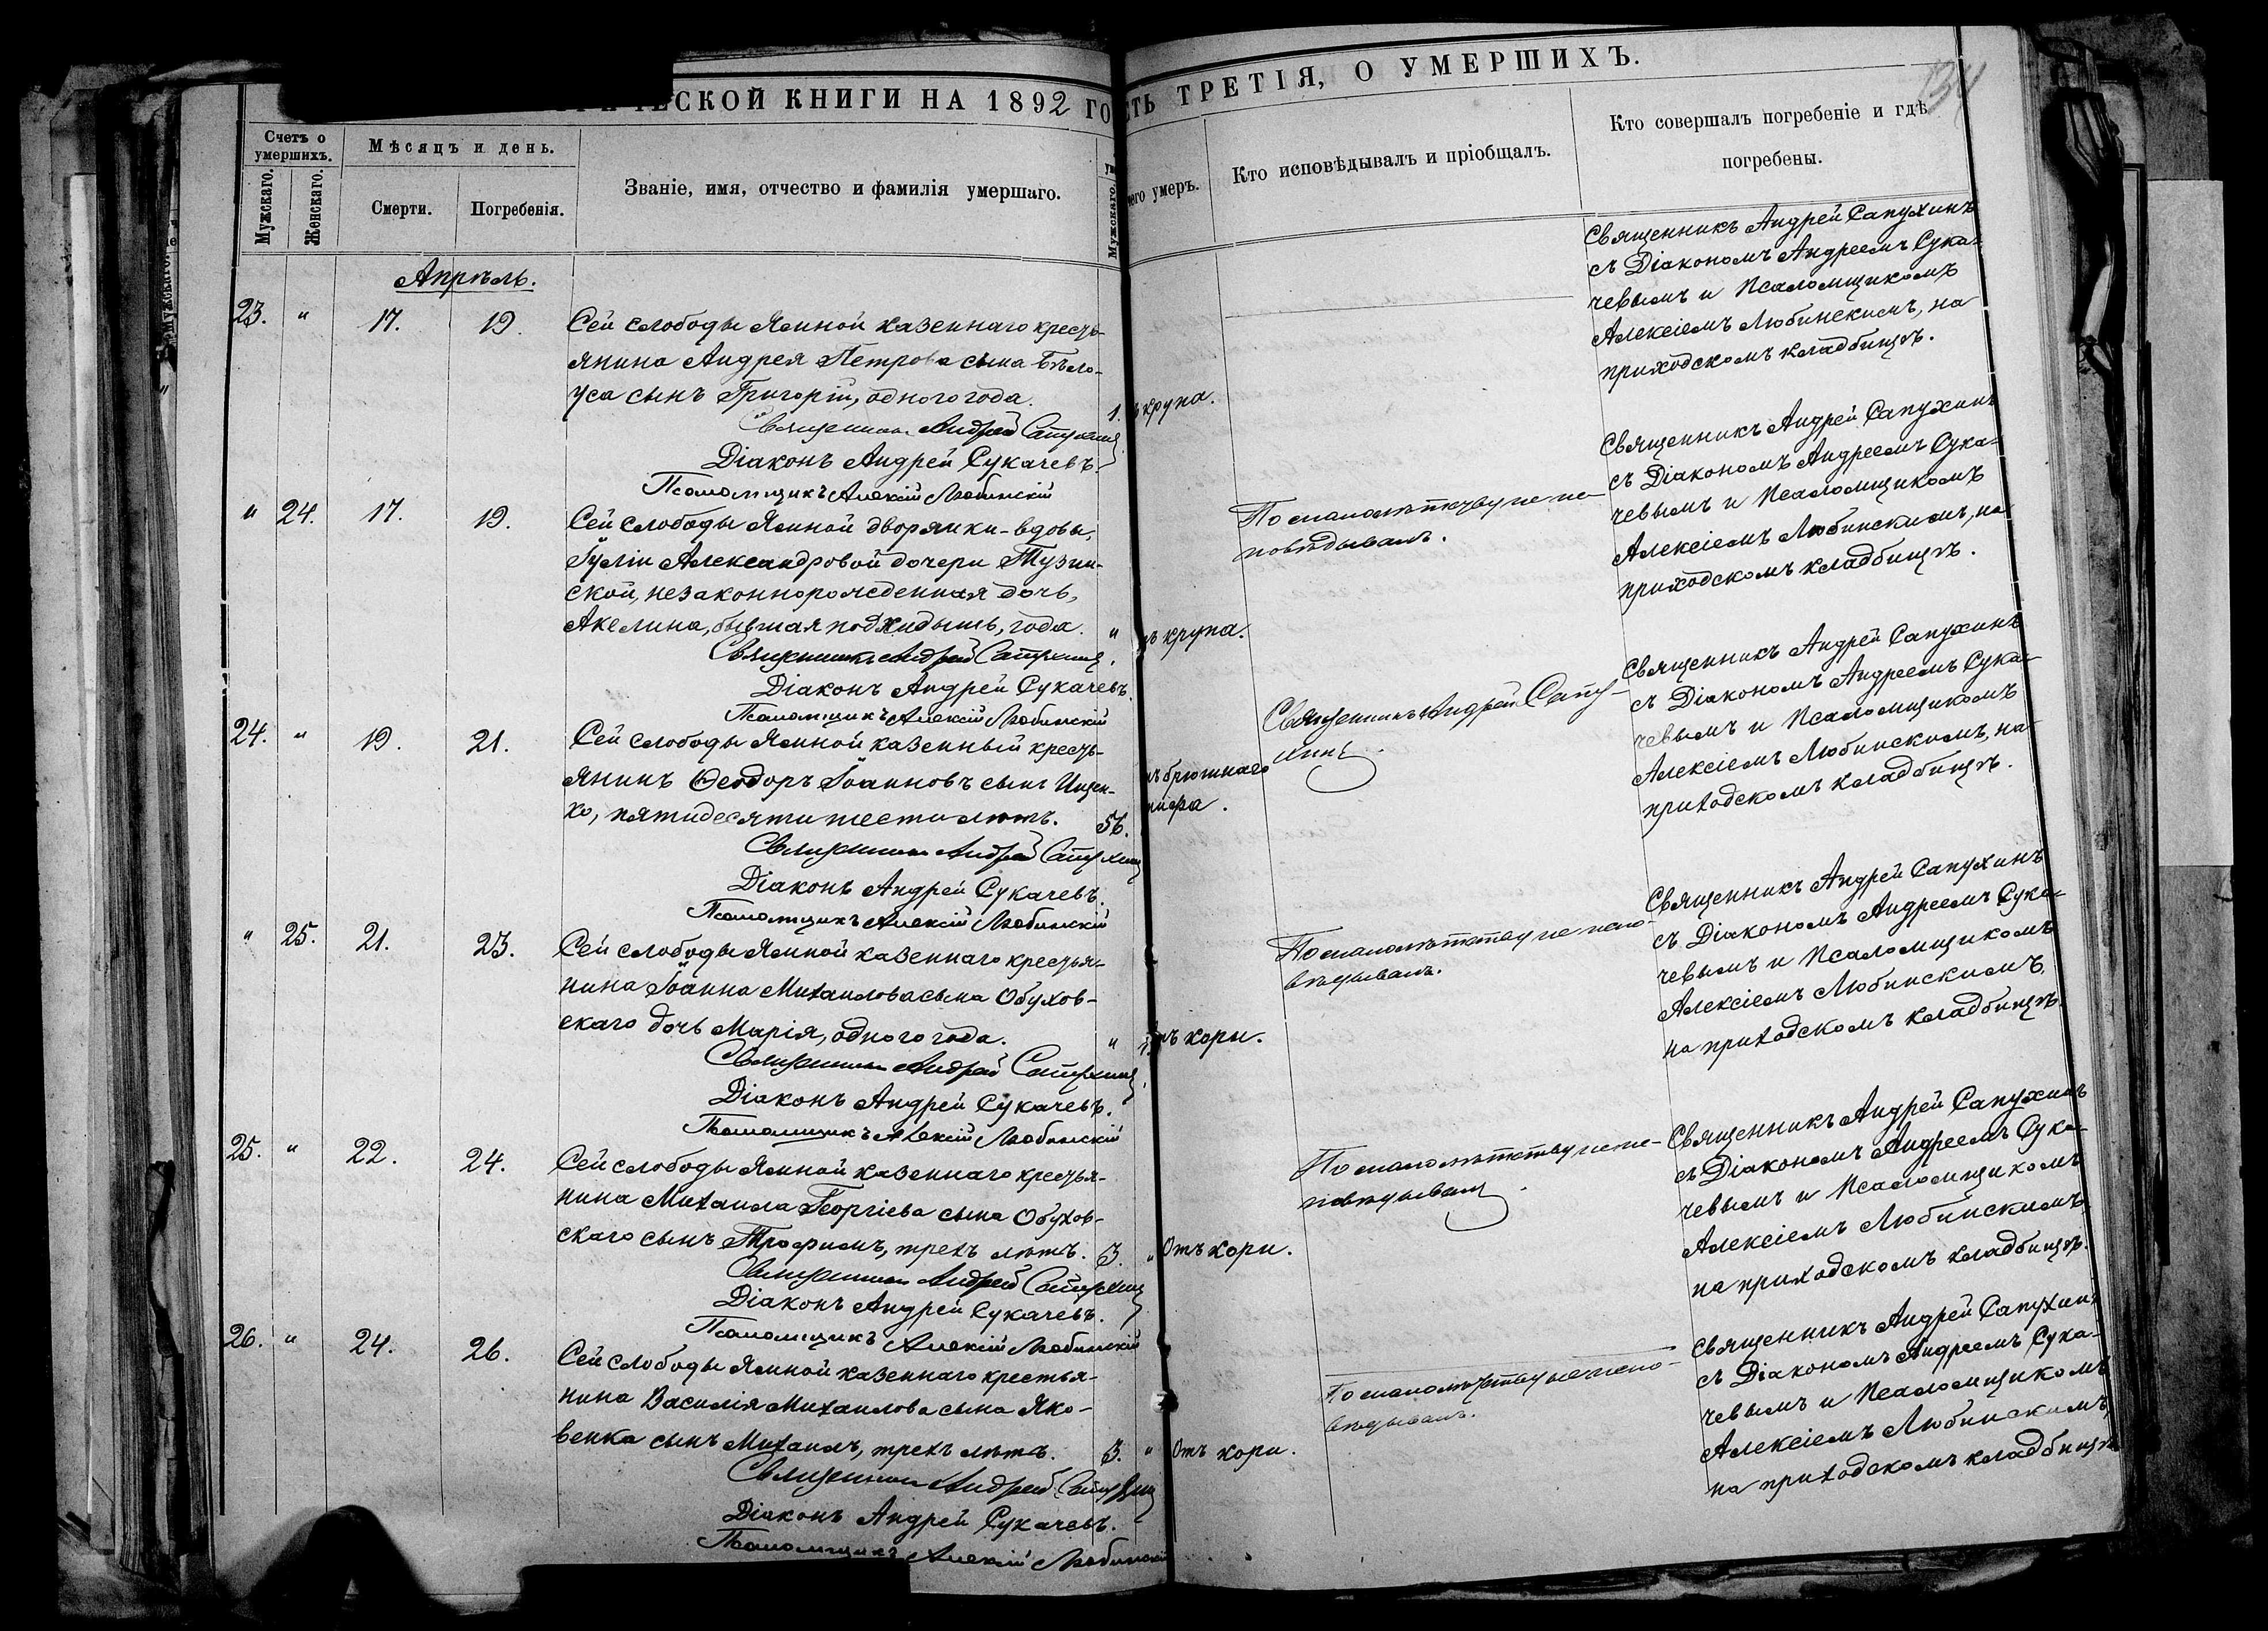 СКОЙ КНИГИ НА 1892 ГО
СТЬ ТРЕТІЯ, О УМЕРШИХЪ.
Счетъ о умершихъ.
Мужскаго.
Женскаго.
Мѣсяцъ и день.
Смерти.
Погребенія.
Званіе, имя, отчество и фамилія умершаго.
Мужскаго.
чего умеръ.
Кто исповѣдывалъ и пріобщалъ.
Кто совершалъ погребеніе и гдѣ
погребены.
Апрѣль.
23. " 17. 19.
Сей слободы Ямной казеннаго кресть-
янина Андрея Петрова сына Бѣло-
уса сынъ Григорій, одного года. 1.
крупа.
Священникъ Андрей Сапухинъ
Діаконъ Андрей Сукачевъ.
Псаломщикъ Алексій Любинскій
Священникъ Андрей Сапухинъ
съ Діакономъ Андреемъ Сука-
чевымъ и Псаломщикомъ
Алексіемъ Любинскимъ, на
приходскомъ кладбищѣ.
" 24. 17. 19.
Сей слободы Ямной дворянки-вдовы,
Іуліи Александровой дочери Тузин-
ской, незаконнорожденная дочь,
Акелина, бывшая подкидышъ, года. "
крупа.
Священникъ Андрей Сапухинъ
Діаконъ Андрей Сукачевъ.
Псаломщикъ Алексій Любинскій
По малолѣтству не ис-
повѣдывалъ.
Священникъ Андрей Сапухинъ
съ Діакономъ Андреемъ Сука-
чевымъ и Псаломщикомъ
Алексіемъ Любинскимъ, на
приходскомъ кладбищѣ.
24. " 19. 21.
Сей слободы Ямной казенный кресть-
янинъ Ѳеодоръ Іоанновъ сынъ Ищен-
ко, пятидесяти шести лѣтъ. 56.
брюшнаго
тифа.
Священникъ Андрей Сапухинъ
Діаконъ Андрей Сукачевъ.
Псаломщикъ Алексій Любинскій
Священникъ Андрей Сапу-
хинъ
Священникъ Андрей Сапухинъ
съ Діакономъ Андреемъ Сука-
чевымъ и Псаломщикомъ
Алексіемъ Любинскимъ, на
приходскомъ кладбищѣ.
" 25. 21. 23.
Сей слободы Ямной казеннаго крестья-
нина Іоанна Михаилова сына Обухов-
скаго дочь Марія, одного года. " 1.
кори.
Священникъ Андрей Сапухинъ
Діаконъ Андрей Сукачевъ.
Псаломщикъ Алексій Любинскій
По малолѣтству не испо-
вѣдывалъ.
Священникъ Андрей Сапухинъ
съ Діакономъ Андреемъ Сука-
чевымъ и Псаломщикомъ
Алексіемъ Любинскимъ,
на приходскомъ кладбищѣ.
25. " 22. 24.
Сей слободы Ямной казеннаго крестья-
нина Михаила Георгіева сына Обухов-
скаго сынъ Трофимъ, трехъ лѣтъ. 3. " Отъ кори.
Священникъ Андрей Сапухинъ
Діаконъ Андрей Сукачевъ.
Псаломщикъ Алексій Любинскій
По малолѣтству не ис-
повѣдывалъ.
Священникъ Андрей Сапухинъ
съ Діакономъ Андреемъ Сука-
чевымъ и Псаломщикомъ
Алексіемъ Любинскимъ
на приходскомъ кладбищѣ.
26. " 24. 26.
Сей слободы Ямной казеннаго крестья-
нина Василія Михаилова сына Яко-
венка сынъ Михаилъ, трехъ лѣтъ. 3. " Отъ кори.
Священникъ Андрей Сапухинъ
Діаконъ Андрей Сукачевъ.
Псаломщикъ Алексій Любинскій
По малолѣтству не испо-
вѣдывалъ.
Священникъ Андрей Сапухинъ
съ Діакономъ Андреемъ Сука-
чевымъ и Псаломщикомъ
Алексіемъ Любинскимъ,
на приходскомъ кладбищѣ